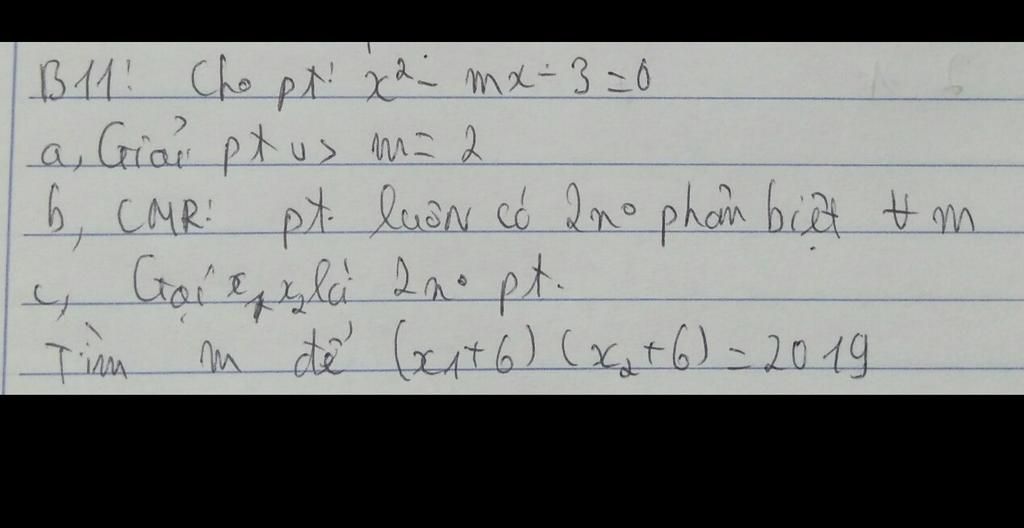 B11: Cho pt: x² - mx - 3 = 0
a, Giải pt vs m = 2
b, CMR: pt luôn có 2n° phân biệt ∀ m
c, Gọi x₁, x₂ là 2n° pt.
Tìm m để (x₁+6)(x₂+6) = 2019